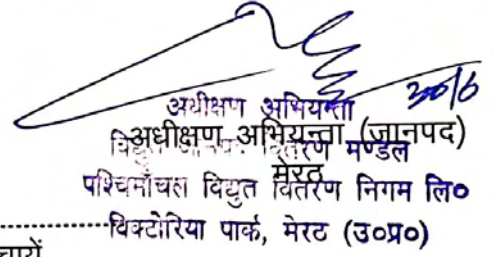 30/6
अधीक्षण अभियन्ता
अधीक्षण अभियन्ता (जानपद)
विद्युत वितरण मण्डल
मेरठ
पश्चिमाँचल विद्युत वितरण निगम लि०
विक्टोरिया पार्क, मेरठ (उ०प्र०)